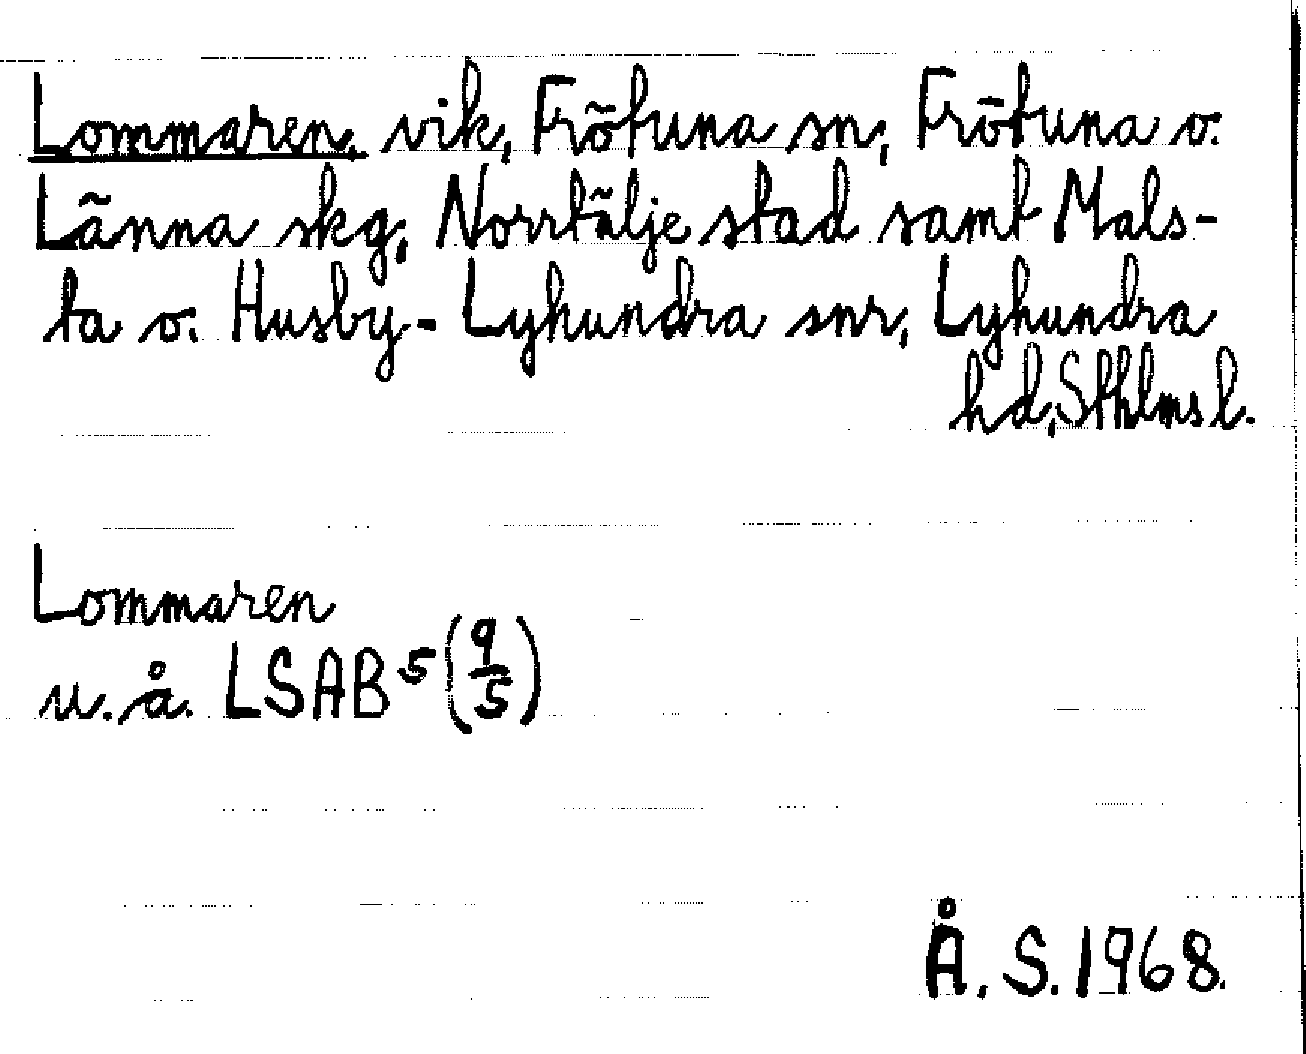 Lommaren, vik, Frötuna sn, Frötuna o.
Länna skg, Norrtälje stad samt Mals-
ta o. Husby-Lyhundra snr, Lyhundra
hd, Sthlms l.
Lommaren
u.å. LSAB⁵ (9/5)
Å. S. 1968.